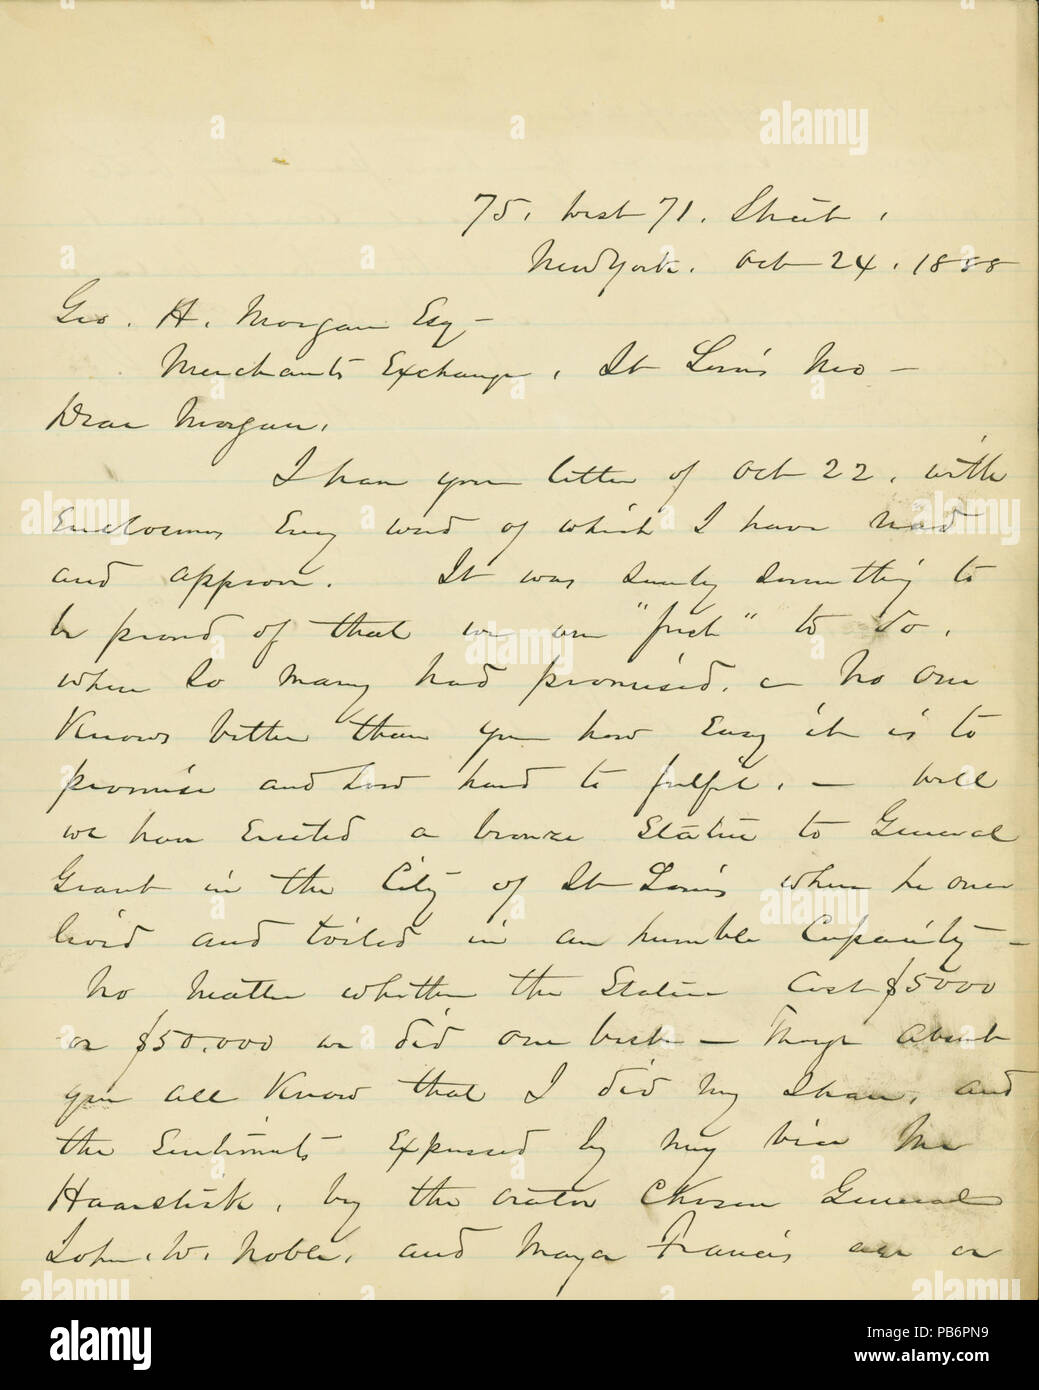 75. West 71. Street.
New York. Oct 24. 1888
Geo. H. Morgan Esq -
Merchants Exchange, St Louis Mo -
Dear Morgan,
I have your letter of Oct 22. with
Enclosures Every word of which I have read
and approve. It was surely something to
be proud of that we were "first" to do,
when so many had promised. & no one
Knows better than you how Easy it is to
promise and how hard to fulfil. - Well
we have Erected a bronze Statue to General
Grant in the City of St Louis where he once
lived and toiled in an humble Capacity -
No matter whether the Statue Cost $5000
or $50.000 we did our best - Though absent
you all Know that I did my Share, and
the Sentiments Expressed by my vice Mr
Haarstick, by the orator Chosen General
John. W. Noble, and Mayor Francis are on
alamy
alamy
alamy
alamy
alamy
alamy
alamy
Image ID: PB6PN9
www.alamy.com